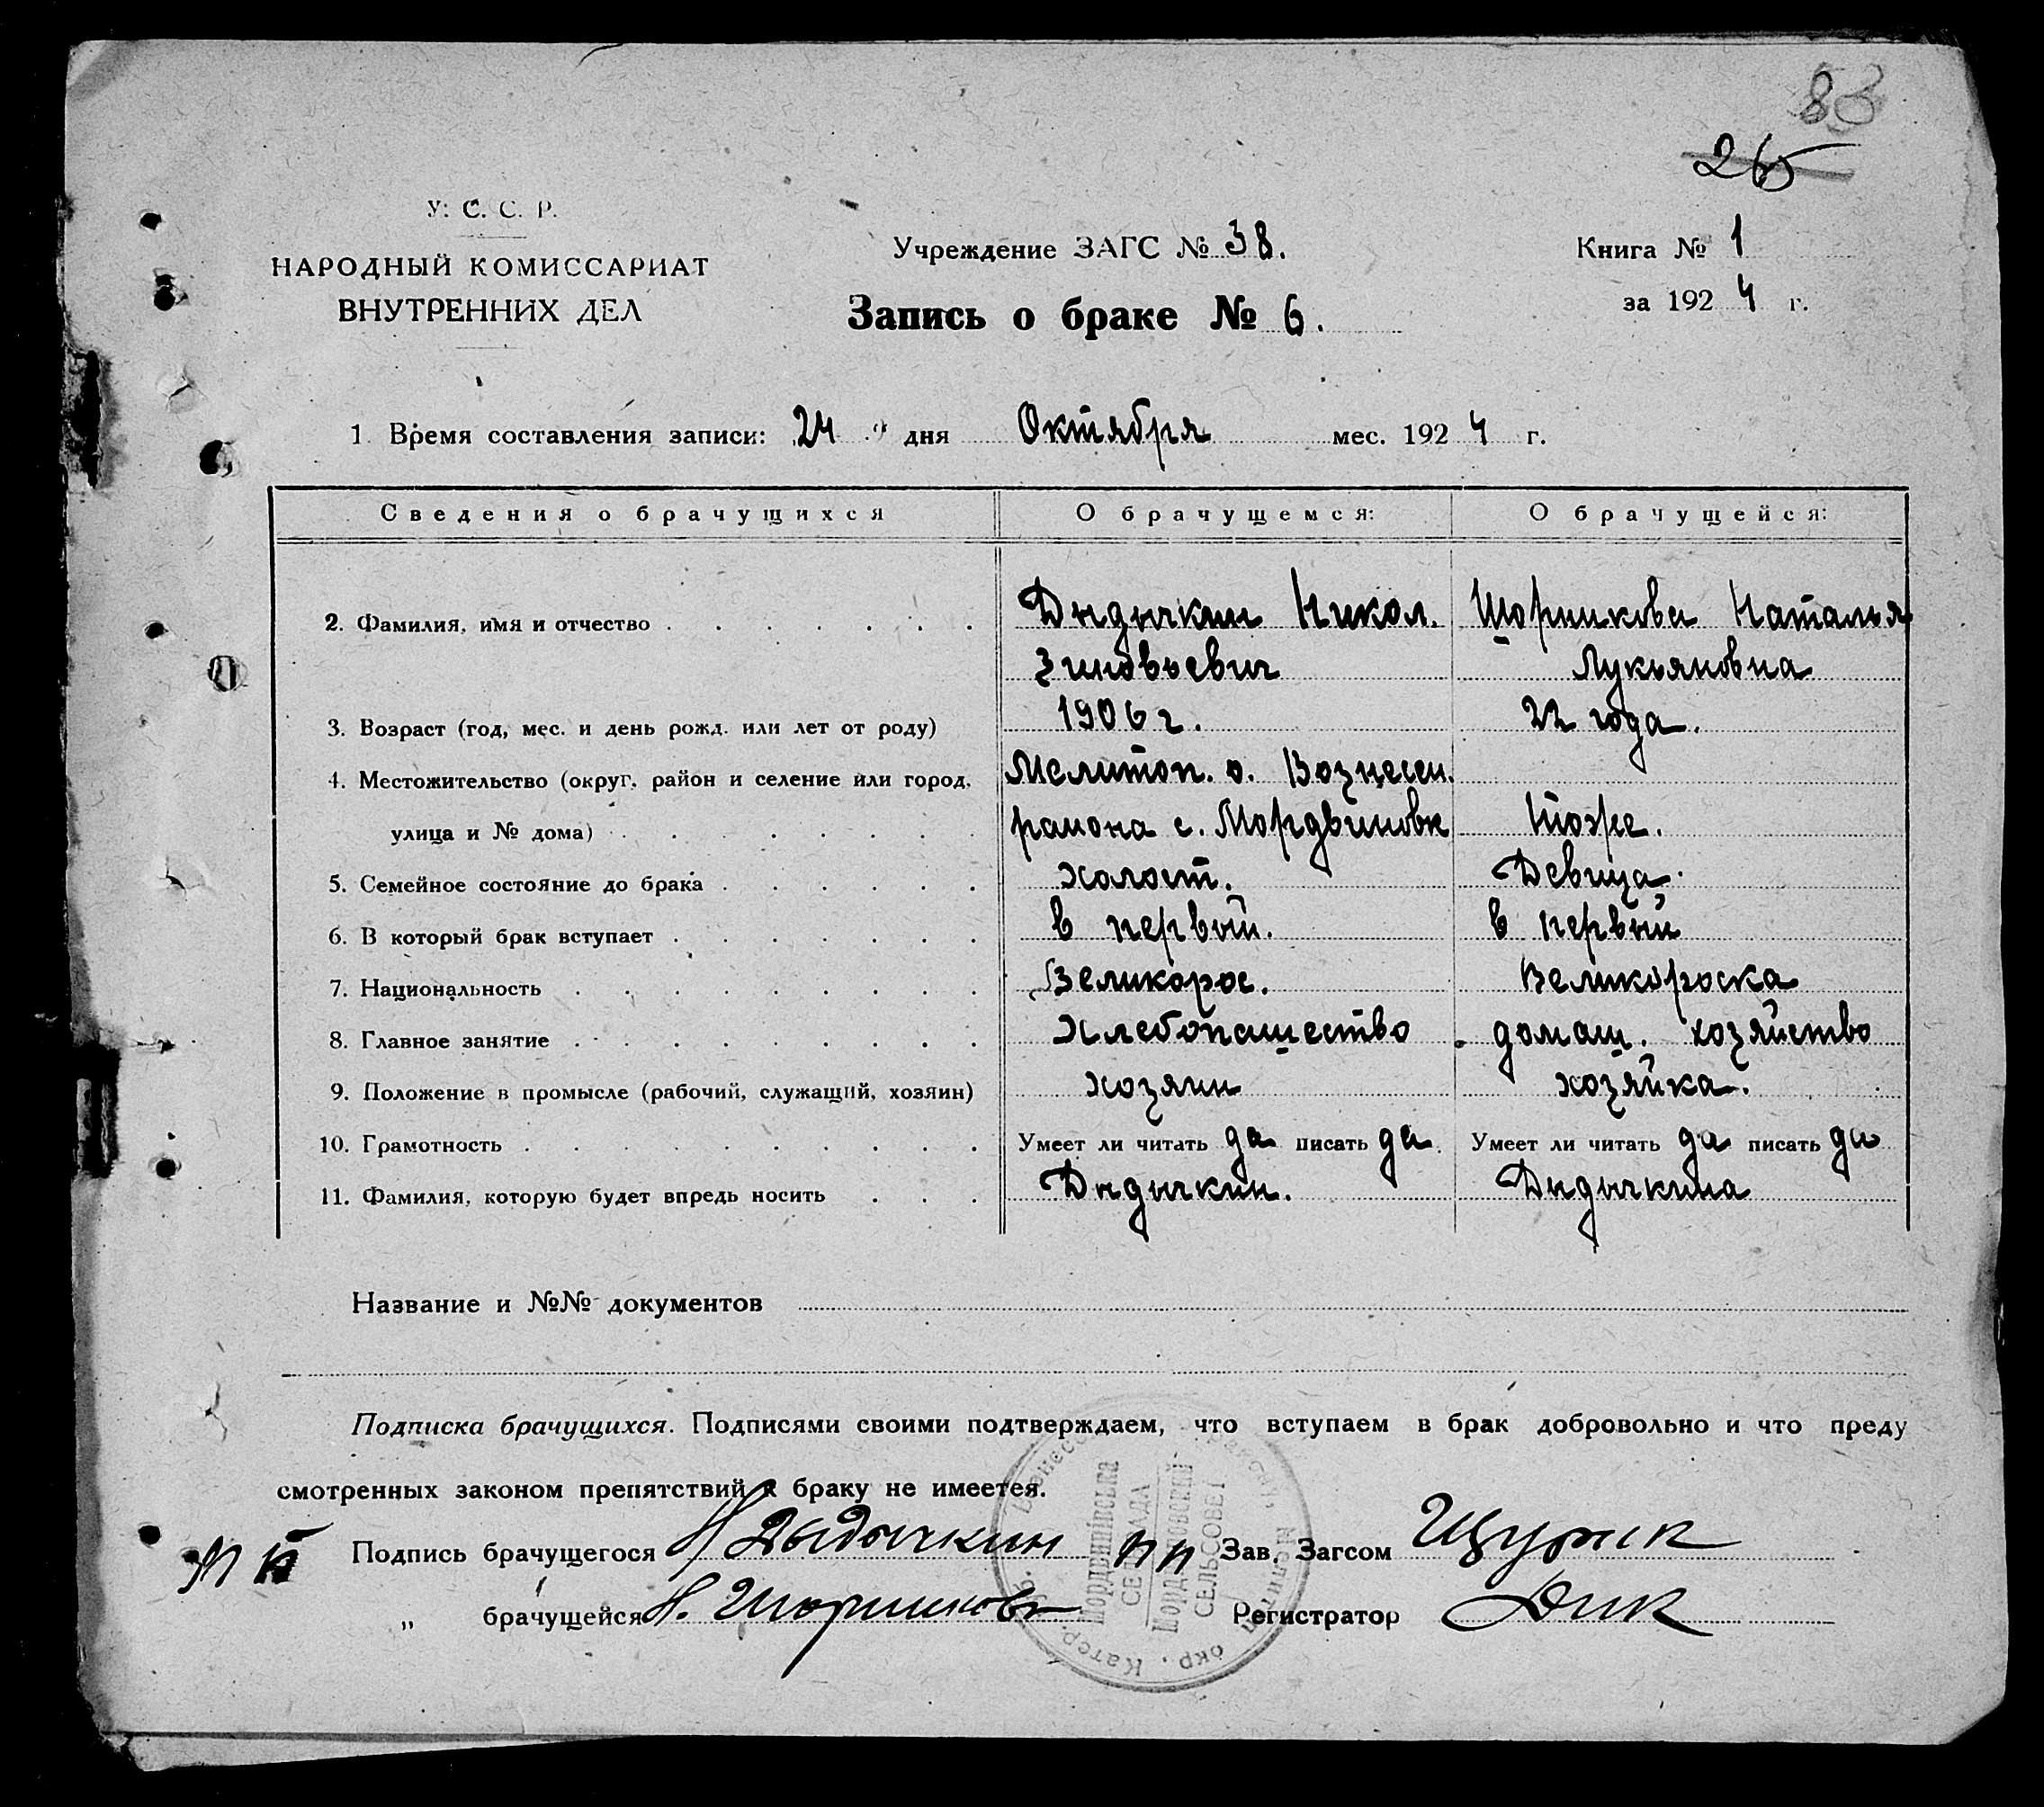 83
265
У. С. С. Р.
НАРОДНЫЙ КОМИССАРИАТ
ВНУТРЕННИХ ДЕЛ
Учреждение ЗАГС № 38.
Запись о браке № 6.
Книга № 1
за 1924 г.
1. Время составления записи: 24 дня Октября мес. 1924 г.
Сведения о брачущихся О брачущемся: О брачущейся:
2. Фамилия, имя и отчество Дыдычкин Никол. Шорникова Наталья
Зиновьевич Лукьяновна
3. Возраст (год, мес. и день рожд. или лет от роду) 1906 г. 22 года.
4. Местожительство (округ, район и селение или город, Мелитоп. о. Вознесен.
улица и № дома) района с. Мордвиновк тоже.
5. Семейное состояние до брака холост. Девица.
6. В который брак вступает в первый. в первый
7. Национальность Великорос. Великороска
8. Главное занятие Хлебопашество домаш. хозяйство
9. Положение в промысле (рабочий, служащий, хозяин) хозяин хозяйка.
10. Грамотность Умеет ли читать да писать да. Умеет ли читать да писать да
11. Фамилия, которую будет впредь носить Дыдычкин. Дыдычкина
Название и №№ документов
Подписка брачущихся. Подписями своими подтверждаем, что вступаем в брак добровольно и что преду
смотренных законом препятствий к браку не имеется.
Подпись брачущегося Н Дыдычкин пп Зав. Загсом Щурик
„ брачущейся Н. Шорникова Регистратор Дик
Мордвинівська
СЕЛРАДА
Мордвиновский
СЕЛЬСОВЕТ